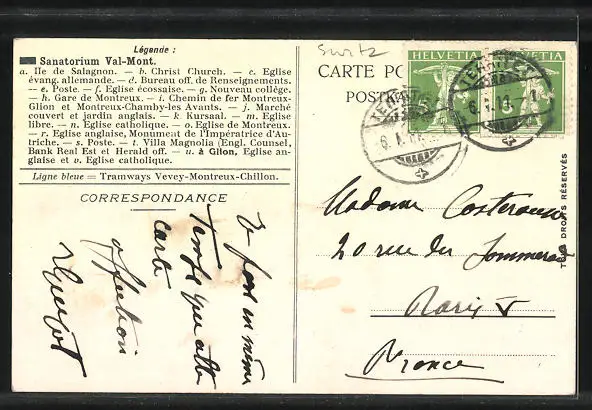 Légende :
Sanatorium Val-Mont.
a. Ile de Salagnon. — b. Christ Church. — c. Eglise
évang. allemande. — d. Bureau off. de Renseignements.
— e. Poste. — f. Eglise écossaise. — g. Nouveau collège.
— h. Gare de Montreux. — i. Chemin de fer Montreux-
Glion et Montreux-Chamby-les Avants. — j. Marché
couvert et jardin anglais. — k. Kursaal. — m. Eglise
libre. — n. Eglise catholique. — o. Eglise de Montreux.
— r. Eglise anglaise, Monument de l'Impératrice d'Au-
triche. — s. Poste. — t. Villa Magnolia (Engl. Counsel,
Bank Real Est et Herald off. — u. à Glion, Eglise an-
glaise et v. Eglise catholique.
Ligne bleue = Tramways Vevey-Montreux-Chillon.
CORRESPONDANCE
en même
Temps que
carte
affection
Switz
CARTE PO
POSTKA
HELVETIA
HELVETIA
5
Madame
20 rue du Sommerard
Paris V
France
TOUS DROITS RÉSERVÉS